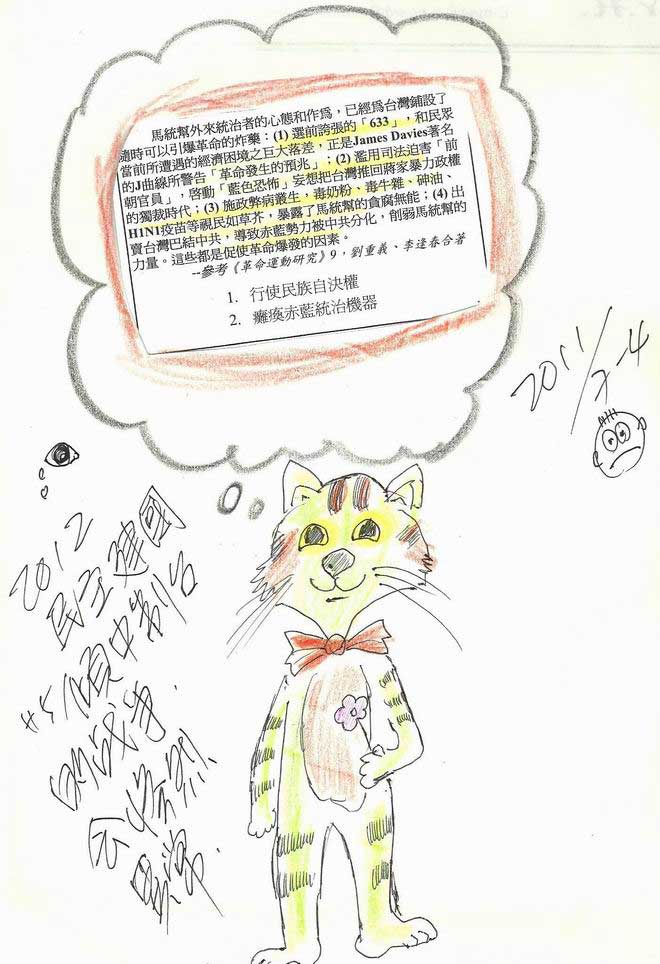 馬統幫外來統治者的心態和作為，已經為台灣鋪設了
隨時可以引爆革命的炸藥：(1) 選前誇張的「633」，和民眾
當前所遭遇的經濟困境之巨大落差，正是James Davies著名
的J曲線所警告「革命發生的預兆」；(2) 濫用司法迫害「前
朝官員」，啓動「藍色恐怖」妄想把台灣推回蔣家暴力政權
的獨裁時代；(3) 施政弊病叢生，毒奶粉、毒牛雜、砷油、
H1N1疫苗等視民如草芥，暴露了馬統幫的貪腐無能；(4) 出
賣台灣巴結中共，導致赤藍勢力被中共分化，削弱馬統幫的
力量。這些都是促使革命爆發的因素。
--參考《革命運動研究》9，劉重義、李逢春合著
1. 行使民族自決權
2. 癱瘓赤藍統治機器
2011/
2012
民主建國
中制台